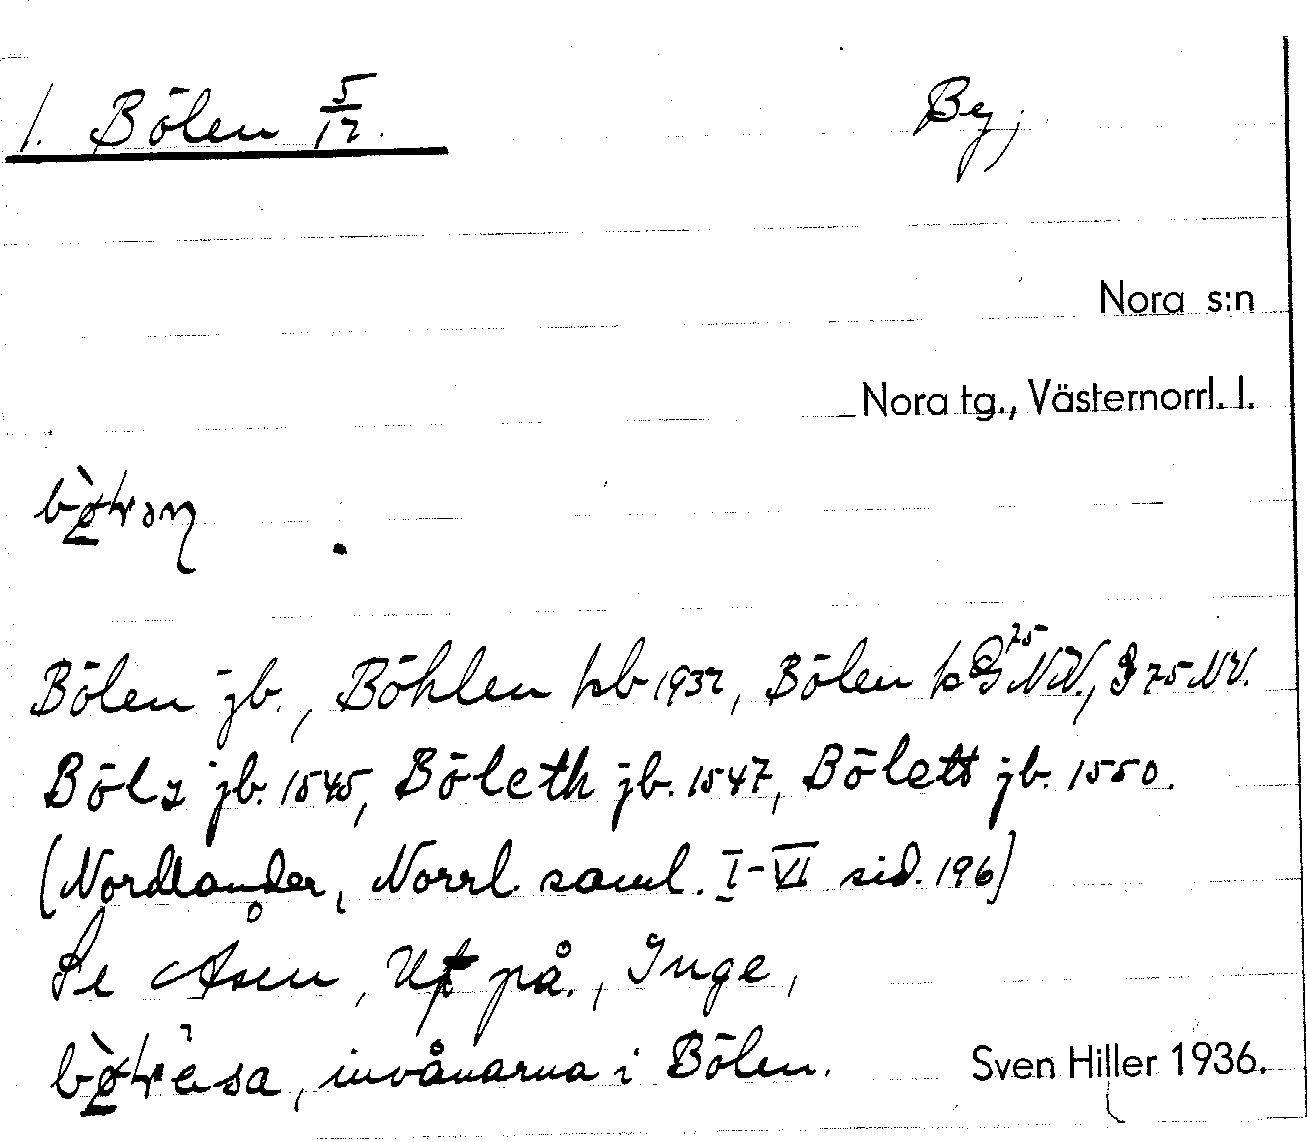 1. Bölen 5/12. By,
Nora s:n
Nora tg., Västernorrl. l.
Bölen jb., Böhlen kb 1932, Bölen NV., G 75 NV.
Böls jb. 1545, Böleth jb. 1547, Bölett jb. 1550.
(Nordlander, Norrl. saml. I-VI sid. 196)
Se Åsen, på., Inge,
invånarna i Bölen.
Sven Hiller 1936.